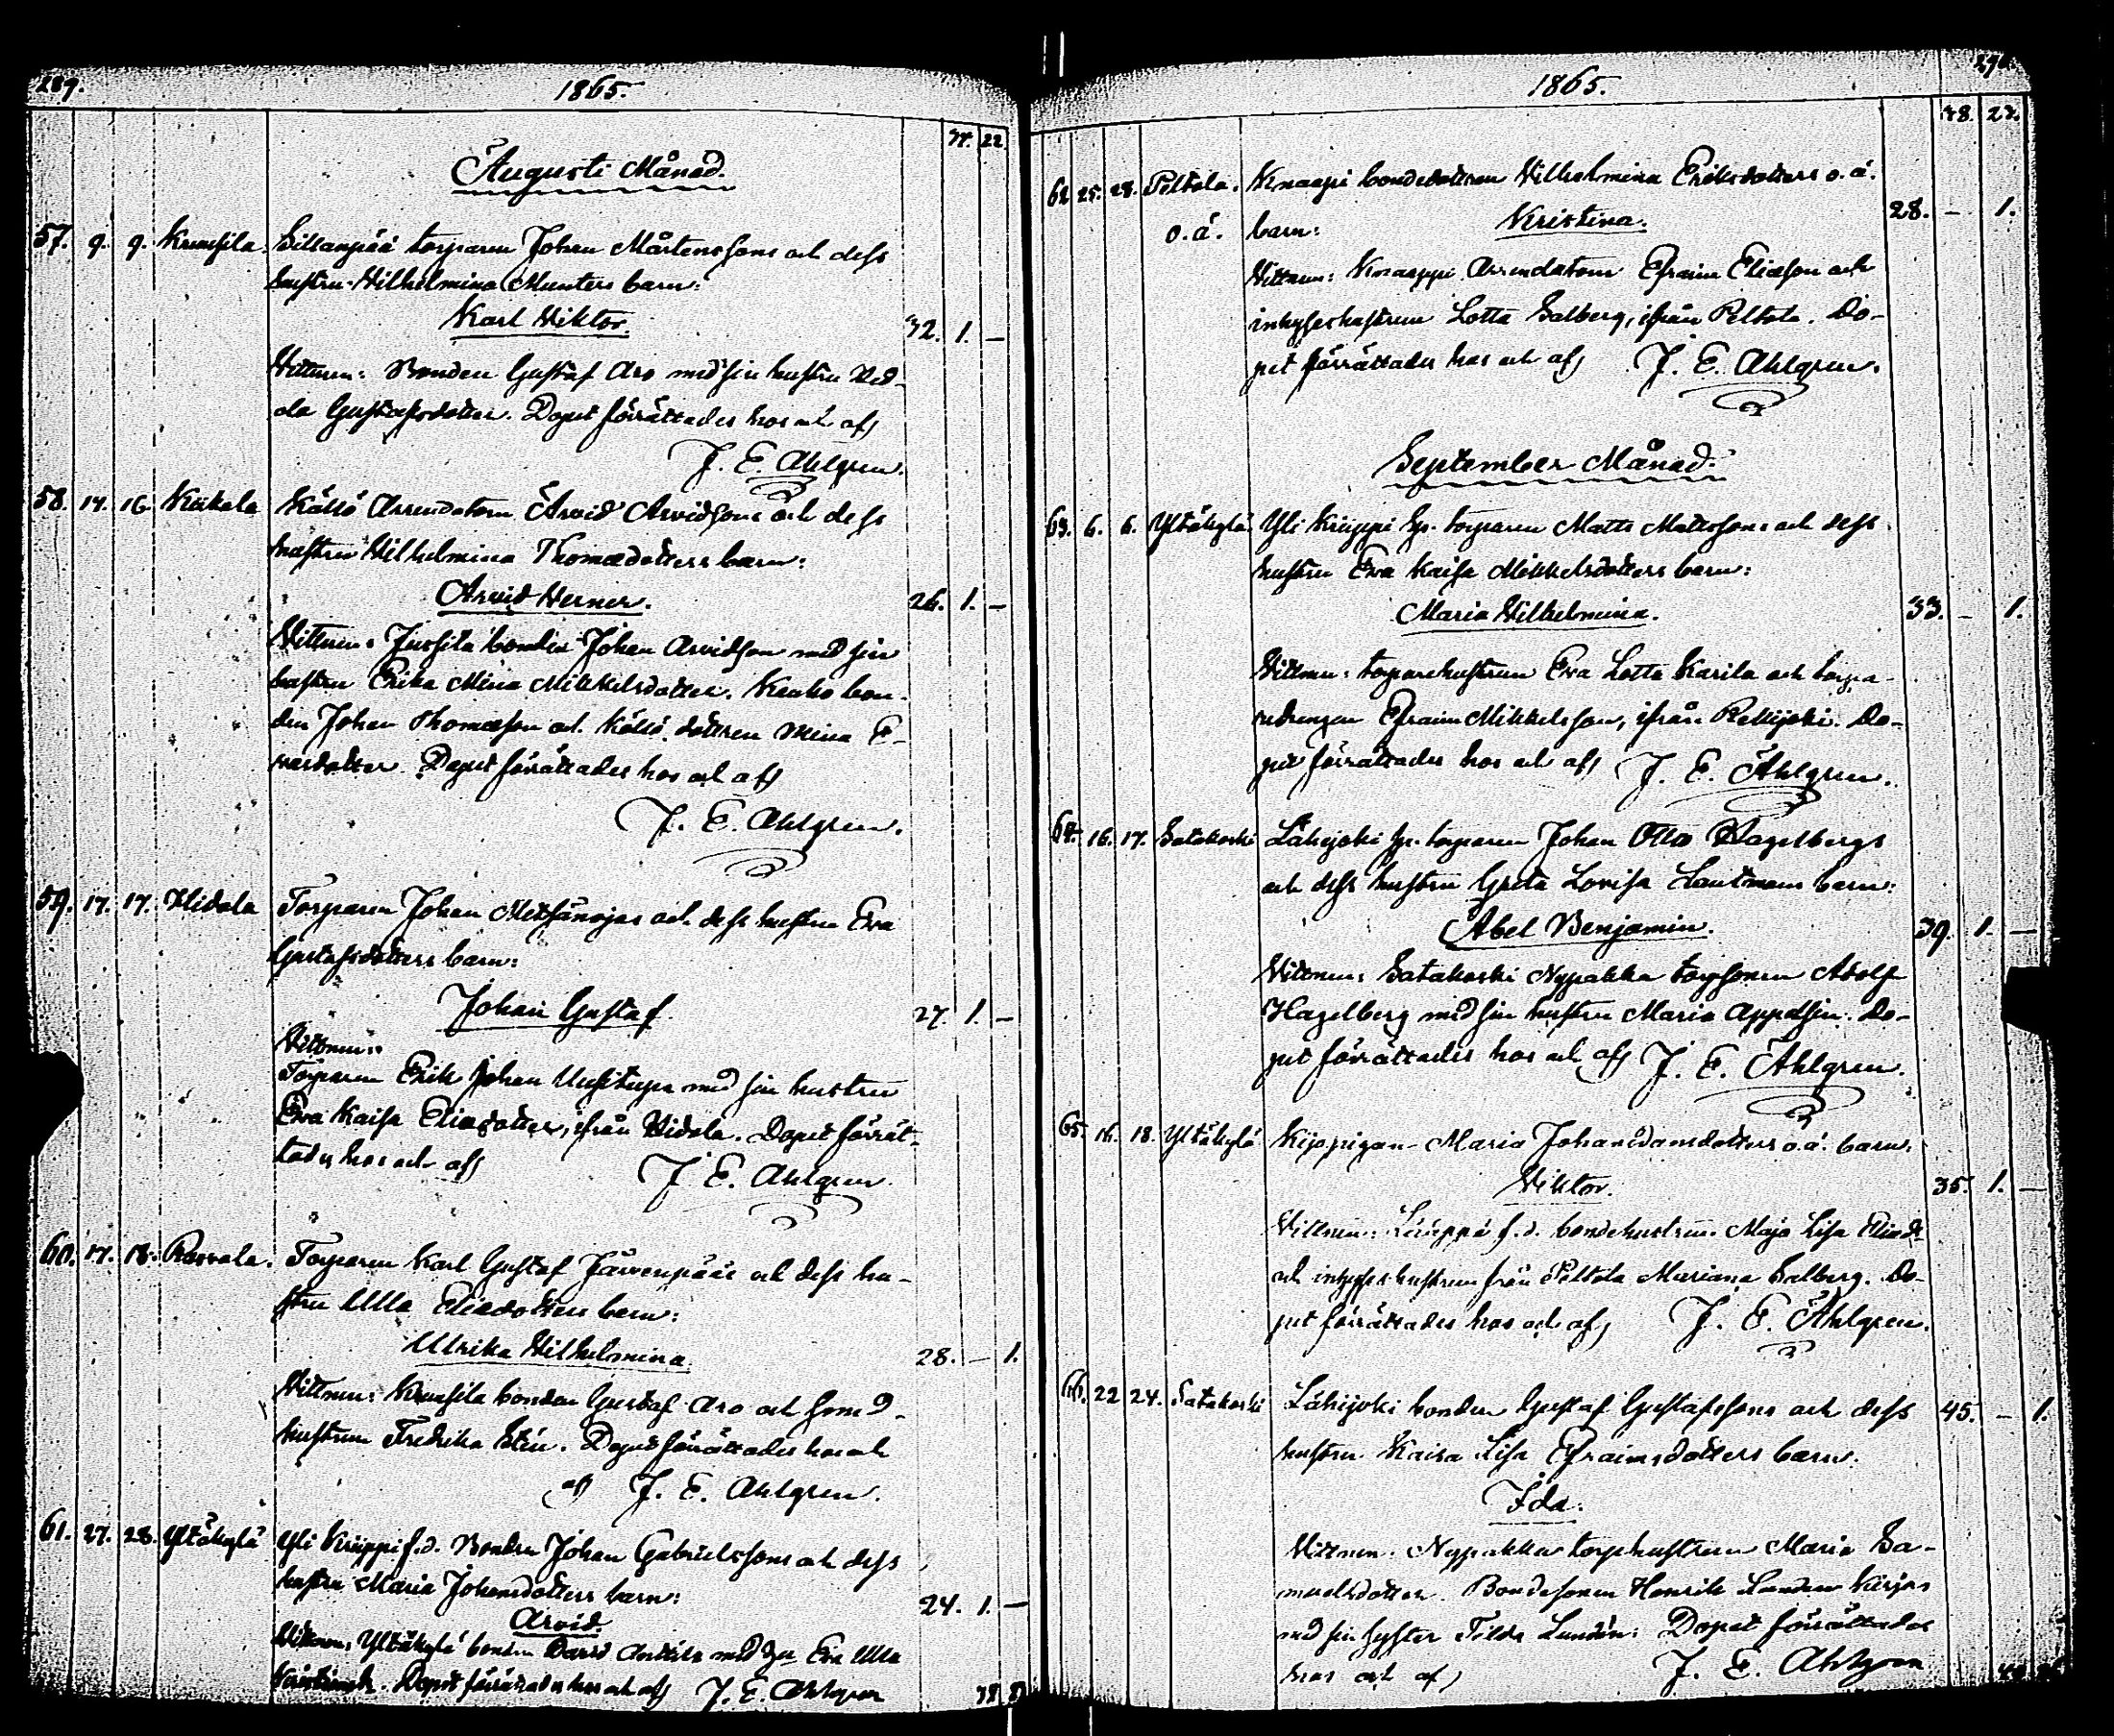 289.
1865.
37. 22.
Augusti Månad.
57. 9. 9. Krunsila. Sillanpää torparen Johan Mårtenssons och dess
hustru Wilhelmina Munters barn:
Karl Viktor. 32. 1. –
Vittnen: Bonden Gustaf Aro med sin hustru Hed-
da Gustafsdotter. Dopet förrättades hos och af
J. E. Ahlgren.
58. 14. 16. Koikala Källö Arrendatorn Arvid Arvidssons och dess
hustru Wilhelmina Thomædotters barn:
Arvid Verner. 26. 1. –
Vittnen: Jussila bonden Johan Arvidsson med sin
hustru Erika Mina Mikkelsdotter. bon-
den Johan Thomasson och Källö dottren Mina E-
varsdotter. Dopet förrättades hos och af
J. E. Ahlgren.
59. 17. 17. Hidola Torparen Johan Metsänojas och dess hustru Eva
Gustafsdotters barn:
Johan Gustaf 27. 1. –
Vittnen:
Torparen Erik Johan Uusitupa med sin hustru
Eva Kaisa Eliædotter, ifrån Hidola. Dopet förrät-
tades hos och af J. E. Ahlgren.
60. 17. 18. Rasvala. Torparen Karl Gustaf Järvenpääs och dess hu-
stru Ulla Eliædotters barn:
Ulrika Wilhelmina 28. – 1.
Vittnen: Krunsila bonden Gustaf Aro och smed-
hustrun Fredrika Stén. Dopet förrättades hos och
af J. E. Ahlgren.
61. 27. 28. Yltäkylä Yli Kirppi f.d. Bonden Johan Gabrielssons och dess
hustru Maria Johansdotters barn:
Arvid. 24. 1. –
Vittnen: Yltäkylä bonden David Anttila med Eva Ulla
Dopet förrättades hos och af J. E. Ahlgren
1865.
290.
38. 23.
62. 25. 28. Peltola. Knaapi bondedottren Wilhelmina Eriksdotters o.ä.
o.ä. barn: Kristina. 28. – 1.
Vittnen: Knaappi Arrendatorn Efraim Eliasson och
inhyseshustrun Lotta Salberg, ifrån Peltola. Do-
pet förrättades hos och af J. E. Ahlgren.
September Månad.
63. 6. 6. Yltäkylä Yli Kirppi torparen Matts Mattssons och dess
hustru Eva Kaisa Mikkelsdotters barn:
Maria Wilhelmina. 33. – 1.
Vittnen: torparehustrun Eva Lotta Karila och torpa-
redrengen Efraim Mikkelsson, ifrån Rekijoki. Do-
pet förrättades hos och af J. E. Ahlgren.
64. 16. 17. Satakoski Lähijoki torparen Johan Otto Hagelbergs
och dess hustru Greta Lovisa Lautmans barn:
Abel Benjamin. 39. 1. –
Vittnen: Satakoski Nypakka torpsonen Adolf
Hagelberg med sin hustru Maria Appelsin. Do-
pet förrättades hos och af J. E. Ahlgren.
65. 16. 18. Yltäkylä pigan Maria Johandansdotters o.ä. barn.
Viktor. 35. 1. –
Vittnen: f.d. bondehustrun Maja Lisa
och inhyseshustrun från Peltola Mariana Salberg. Do-
pet förrättades hos och af J. E. Ahlgren.
66. 22 24. Satakoski Lähijoki bonden Gustaf Gustafssons och dess 45. – 1.
hustru Kaisa Lisa Efraimsdotters barn.
Ida.
Vittnen: Nypakka torphustrun Maria Sa-
muelsdotter. Bondesonen Henrik
med sin syster Tilda Lundén. Dopet förrättades
hos och af J. E. Ahlgren